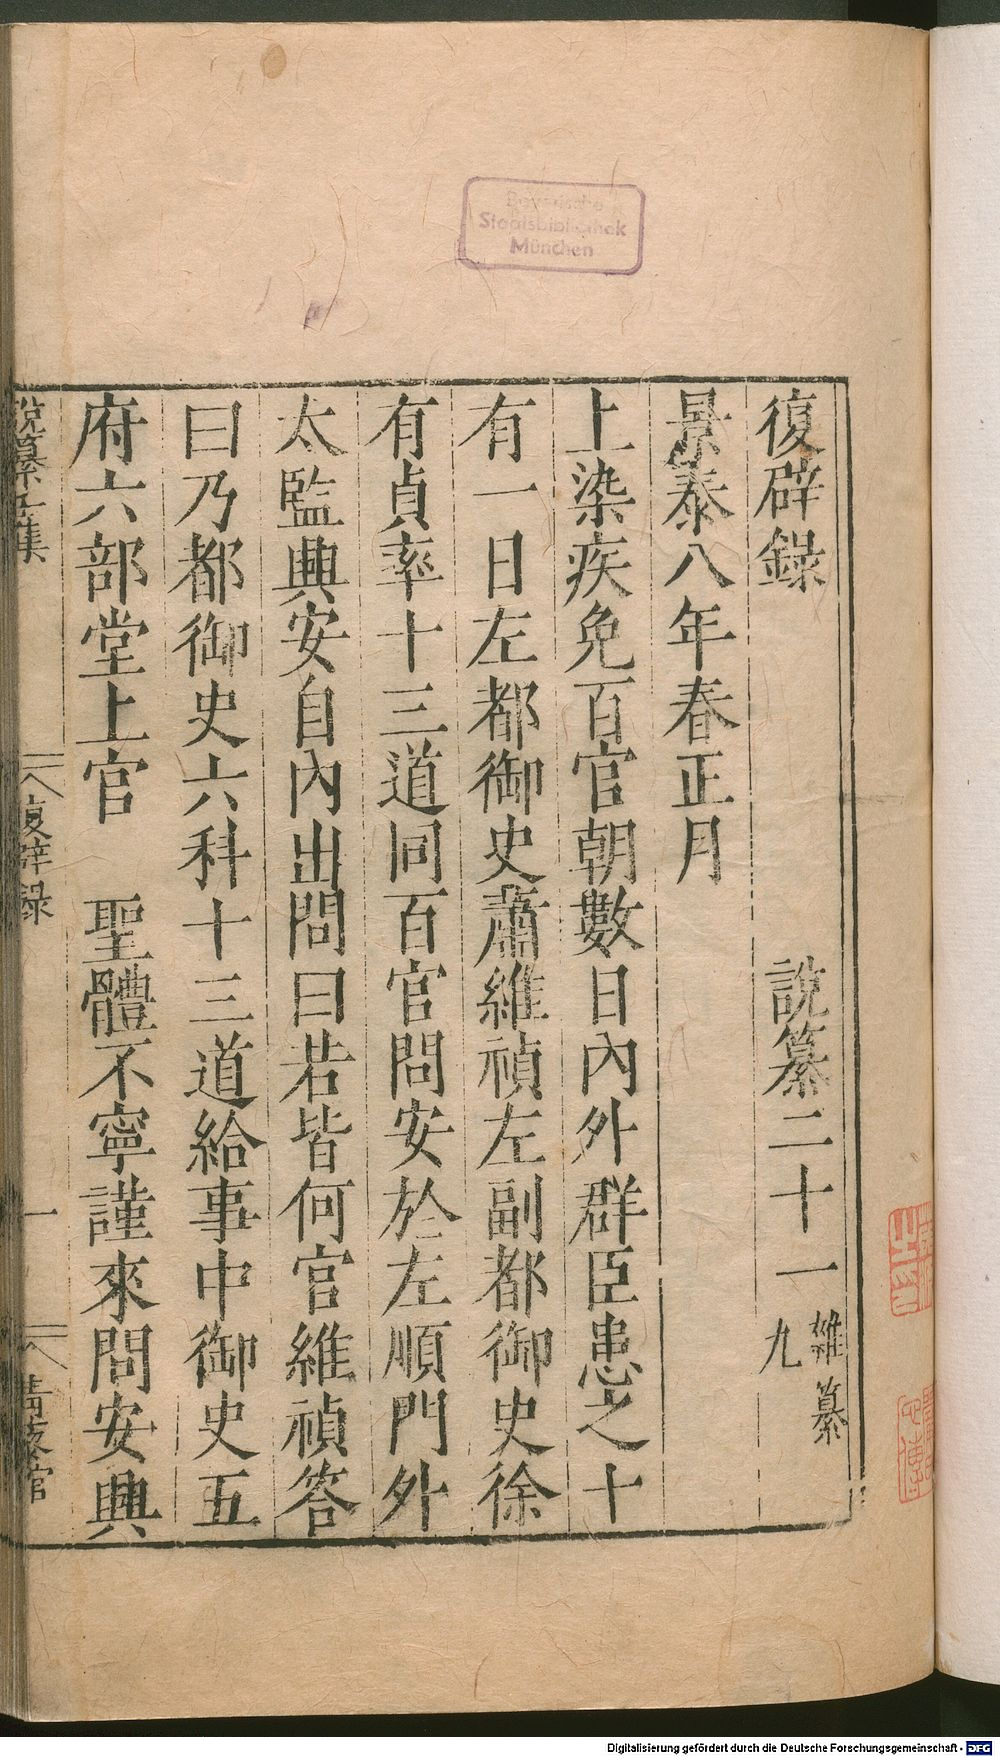 復辟錄 說纂二十一 雜纂九
景泰八年春正月
上染疾免百官朝數日內外群臣患之十
有一日左都御史蕭維禎左副都御史徐
有貞率十三道同百官問安於左順門外
太監興安自內出問曰若皆何官維禎答
曰乃都御史六科十三道給事中御史五
府六部堂上官 聖體不寧謹來問安興
說纂 集 復辟錄 一
Bayerische
Staatsbibliothek
München
Digitalisierung gefördert durch die Deutsche Forschungsgemeinschaft - DFG